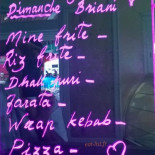 Dimanche Briani
Mine frite -
Riz frite -
Dhal puri -
Farata -
Wrap kebab -
Pizza -